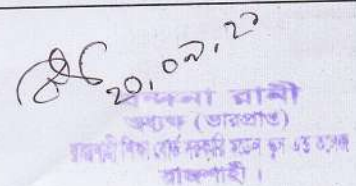 ২০.০৯.২১
বন্দনা রানী
অধ্যক্ষ (ভারপ্রাপ্ত)
রাজশাহী শিক্ষা বোর্ড সরকারি মডেল স্কুল এন্ড কলেজ
রাজশাহী।